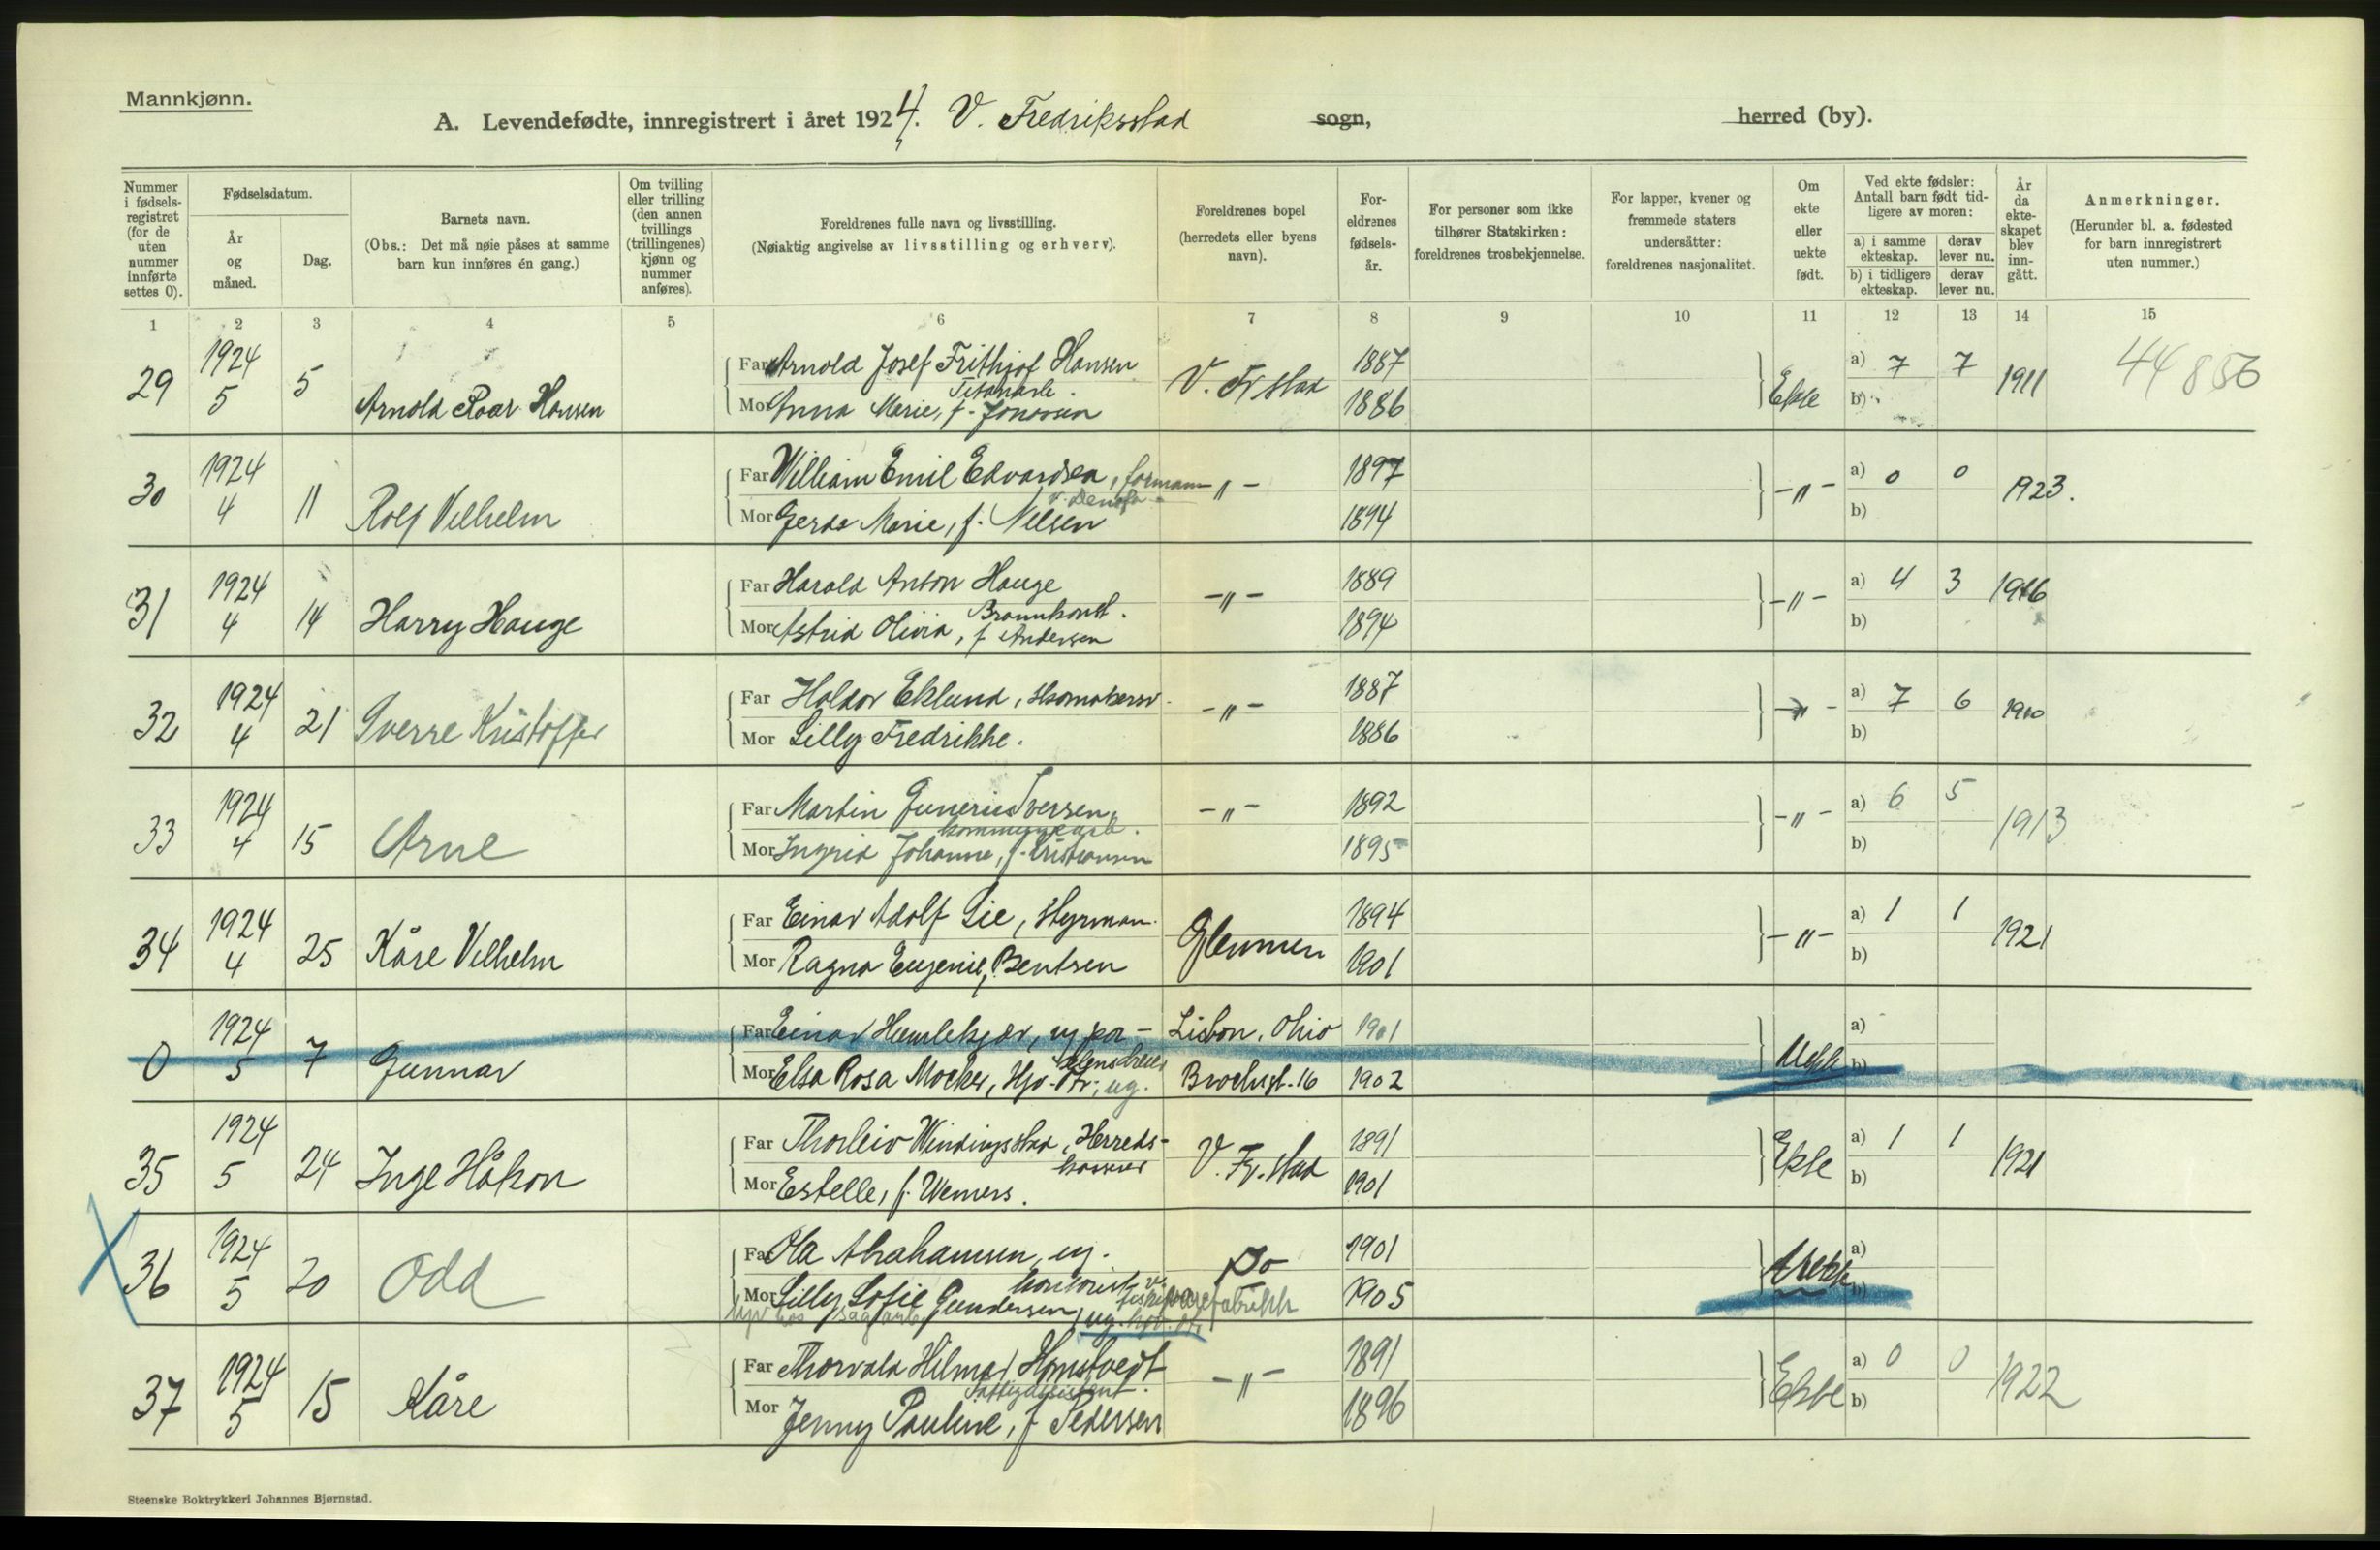 Mannkjønn.
A. Levendefødte, innregistrert i året 1924. V. Fredriksstad sogn, herred (by).
Nummer i fødselsregistret (for de uten nummer innførte settes 0).
Fødselsdatum.
År og måned.
Dag.
Barnets navn.
(Obs.: Det må nøie påses at samme barn kun innføres én gang.)
Om tvilling eller trilling (den annen tvillings (trillingenes) kjønn og nummer anføres).
Foreldrenes fulle navn og livsstilling.
(Nøiaktig angivelse av livsstilling og erhverv).
Foreldrenes bopel (herredets eller byens navn).
Foreldrenes fødselsår.
For personer som ikke tilhører Statskirken: foreldrenes trosbekjennelse.
For lapper, kvener og fremmede staters undersåtter: foreldrenes nasjonalitet.
Om ekte eller uekte født.
Ved ekte fødsler: Antall barn født tidligere av moren:
a) i samme ekteskap. derav lever nu.
b) i tidligere ekteskap. derav lever nu.
År da ekteskapet blev inngått.
Anmerkninger.
(Herunder bl. a. fødested for barn innregistrert uten nummer.)
1 2 3 4 5 6 7 8 9 10 11 12 13 14 15
29 1924 5 5 Arnold Roar Hansen
Far Arnold Josef Frithjof Hansen
Mor Anna Marie, f. Jonassen
V. Fr stad 1887 1886 Ekte a) 7 7 b) 1911 44856
30 1924 4 11 Rolf Vilhelm
Far William Emil Edvardsen, formann v. Denofa
Mor Gerda Marie, f. Nilsen
-"- 1897 1894 -"- a) 0 0 b) 1923.
31 1924 4 14 Harry Hauge
Far Harald Anton Hauge Brannkonst.
Mor Astrid Olivia, f. Andersen
-"- 1889 1894 -"- a) 4 3 b) 1916
32 1924 4 21 Sverre Kristoffer
Far Haldor Eklund, skomakersv.
Mor Lilly Fredrikke.
-"- 1887 1886 -"- a) 7 6 b) 1910
33 1924 4 15 Arne
Far Martin Gunerius Iversen, kommunearb.
Mor Ingrid Johanne, f. Kristiansen
-"- 1892 1895 -"- a) 6 5 b) 1913
34 1924 4 25 Kåre Vilhelm
Far Einar Adolf Lie, styrman.
Mor Ragna Eugenie, Bentsen
Glemmen 1894 1901 -"- a) 1 1 b) 1921
0 1924 5 7 Gunnar
Far Einar Hemlekjær, ug.
Mor Elsa Rosa Mocker, ug.
Lisbon, Ohio Brochsgt. 16 1901 1902 Uekte a) b)
35 1924 5 24 Inge Håkon
Far Thorleiv Windingsstad, Herredskasserer
Mor Estelle, f. Wemers.
V. Fr. stad 1891 1901 Ekte a) 1 1 b) 1921
X 36 1924 5 20 Odd
Far Ola Abrahamsen, ug. kontorist v.
Mor Lilly Sofie Gundersen, ug.
Do 1901 1905 Uekte a) b)
37 1924 5 15 Kåre
Far Thorvald Hilmar Homstvedt
Mor Jenny Pauline, f. Pedersen
-"- 1891 1896 Ekte a) 0 0 b) 1922
Steenske Boktrykkeri Johannes Bjørnstad.